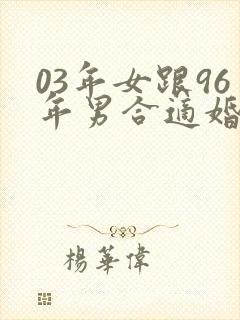 03年女跟96
年男合适婚
楊華偉